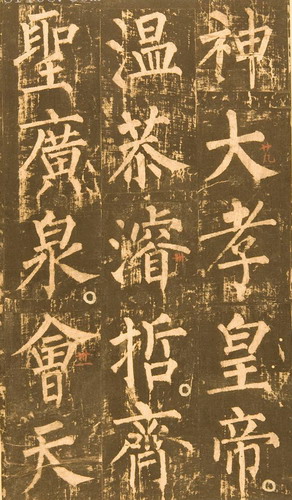 神大孝皇帝
温恭濬哲齊
聖廣泉會天